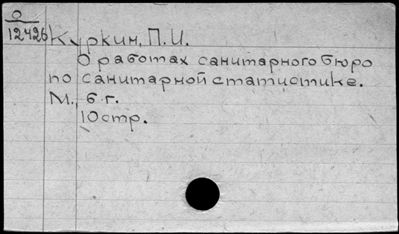 О
12426
Куркин, П.И.
О работах санитарного бюро
по санитарной статистике.
М., б. г.
10 стр.